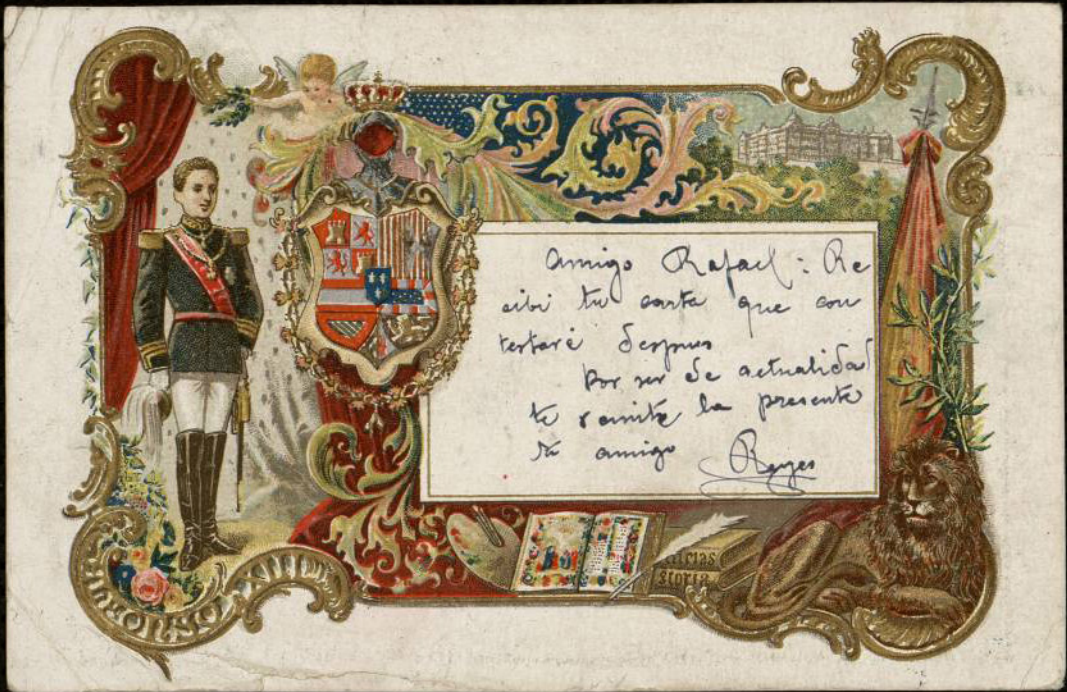 Amigo Rafael: Re
cibi tu carta que con
testaré despues
Por ser de actualidad
te remite la presente
tu amigo Reyes
ALFONSO XIII